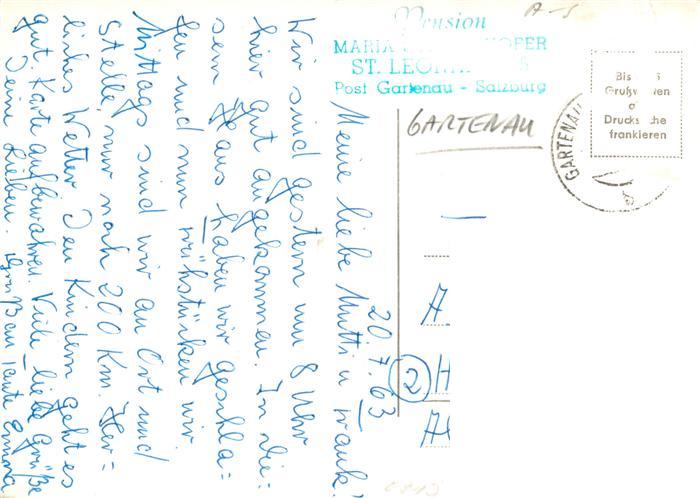 Pension
MARIA
HOFER
ST. LEON
Post Gartenau - Salzburg
A-5
GARTENAU
Bis
5
Grußw ten
Drucks che
frankieren
GARTENAU
20.7.63
Meine liebe Mutti u
Wir sind gestern um 8 Uhr
hier gut angekommen. In die=
sem Haus haben wir geschla=
fen und nun frühstücken wir.
Mittags sind wir an Ort und
Stelle, nur noch 200 Km. Herr=
liches Wetter Den Kindern geht es
gut. Karte aufbewahren. Viele liebe Grüße
Deine Lieben. Gruß an Tante Emma
A
2 H
A